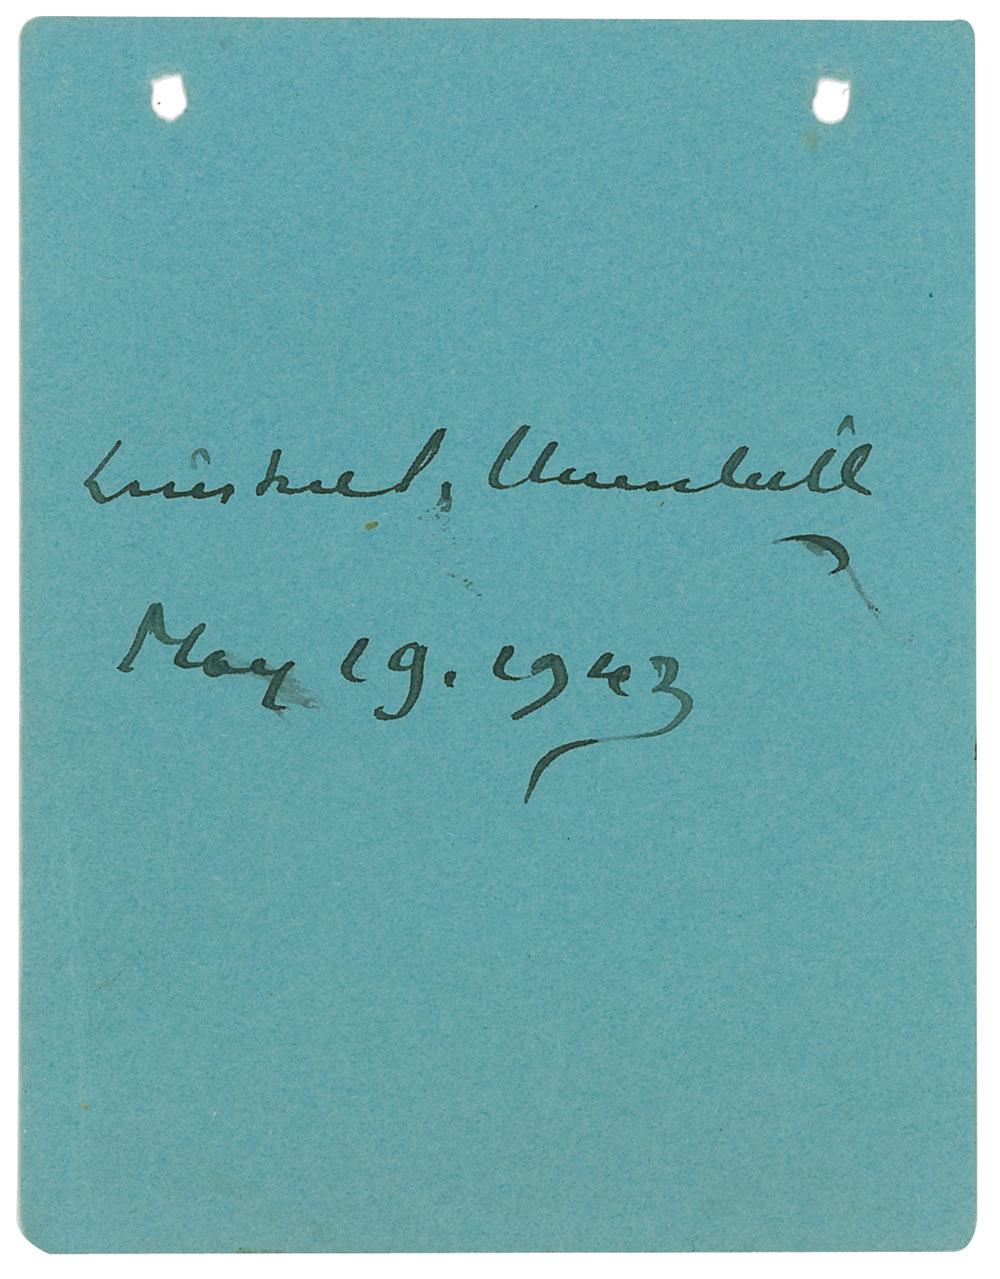 Winston S. Churchill
May 19. 1943